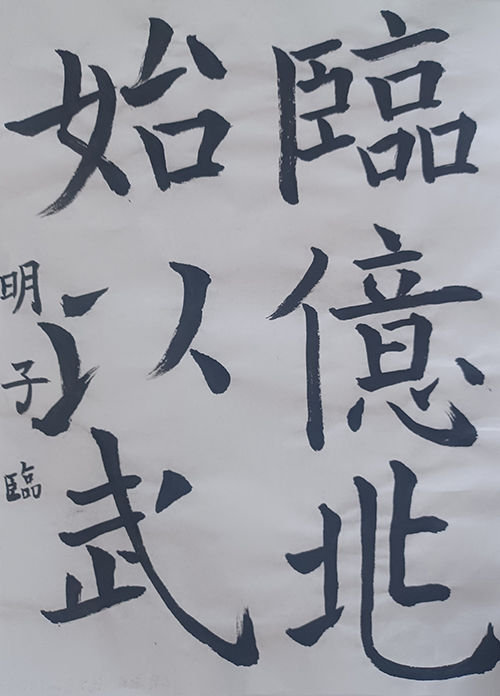 臨億北
始以武
明子臨